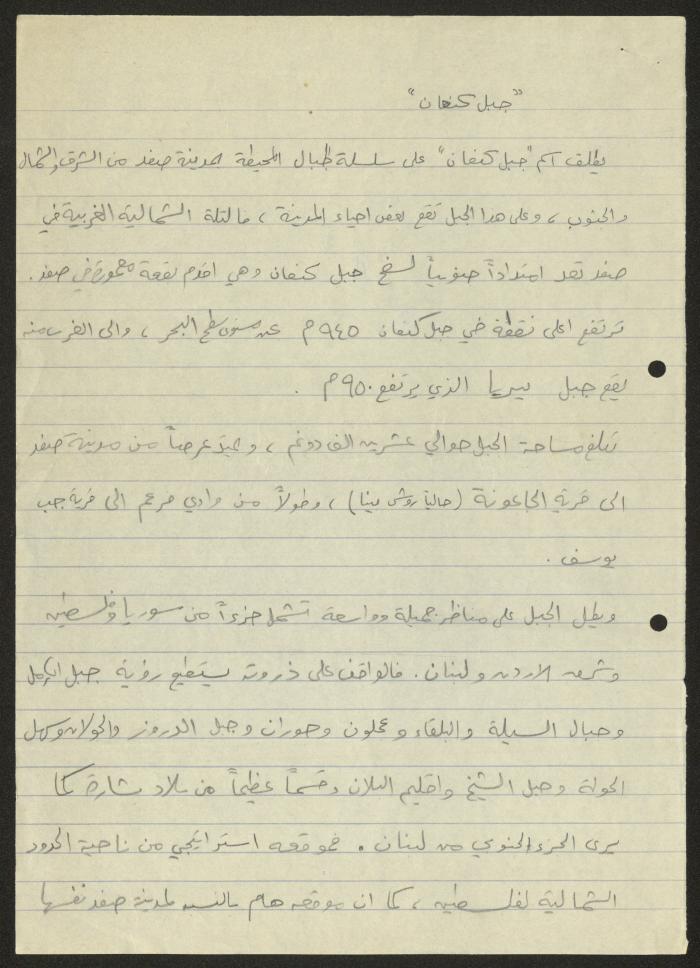 "جبل كنعان"
يطلق اسم "جبل كنعان" على سلسلة الجبال المحيطة بمدينة صفد من الشرق والشمال
والجنوب ، وعلى هذا الجبل تقع بعض احياء المدينة ، فالتلة الشمالية الغربية في
صفد تعد امتداداً جنوبياً لسفح جبل كنعان وهي اقدم بقعة معمورة في صفد .
ترتفع اعلى نقطة في جبل كنعان ٩٤٥ م عن مستوى سطح البحر ، والى الغرب منه
يقع جبل بيريا الذي يرتفع ٩٥٠ م .
تبلغ مساحة الجبل حوالي عشرين الف دونم ، ويمتد عرضاً من مدينة صفد
الى قرية الجاعونة (حالياً روش بينا) ، وطولاً من وادي فرعم الى قرية جب
يوسف .
ويطل الجبل على مناظر جميلة وواسعة تشمل جزءاً من سوريا وفلسطين
وشرق الاردن ولبنان . فالواقف على ذروته يستطيع رؤية جبل الكرمل
وجبال السيلة والبلقاء وعجلون وحوران وجبل الدروز والجولان وسهل
الحولة وجبل الشيخ واقليم البلان وقسماً عظيماً من بلاد بشارة كما
يرى الجزء الجنوبي من لبنان . فموقعه استراتيجي من ناحية الحدود
الشمالية لفلسطين ، كما ان موقعه هام بالنسبه لمدينة صفد نفسها